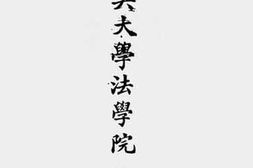 大學法學院